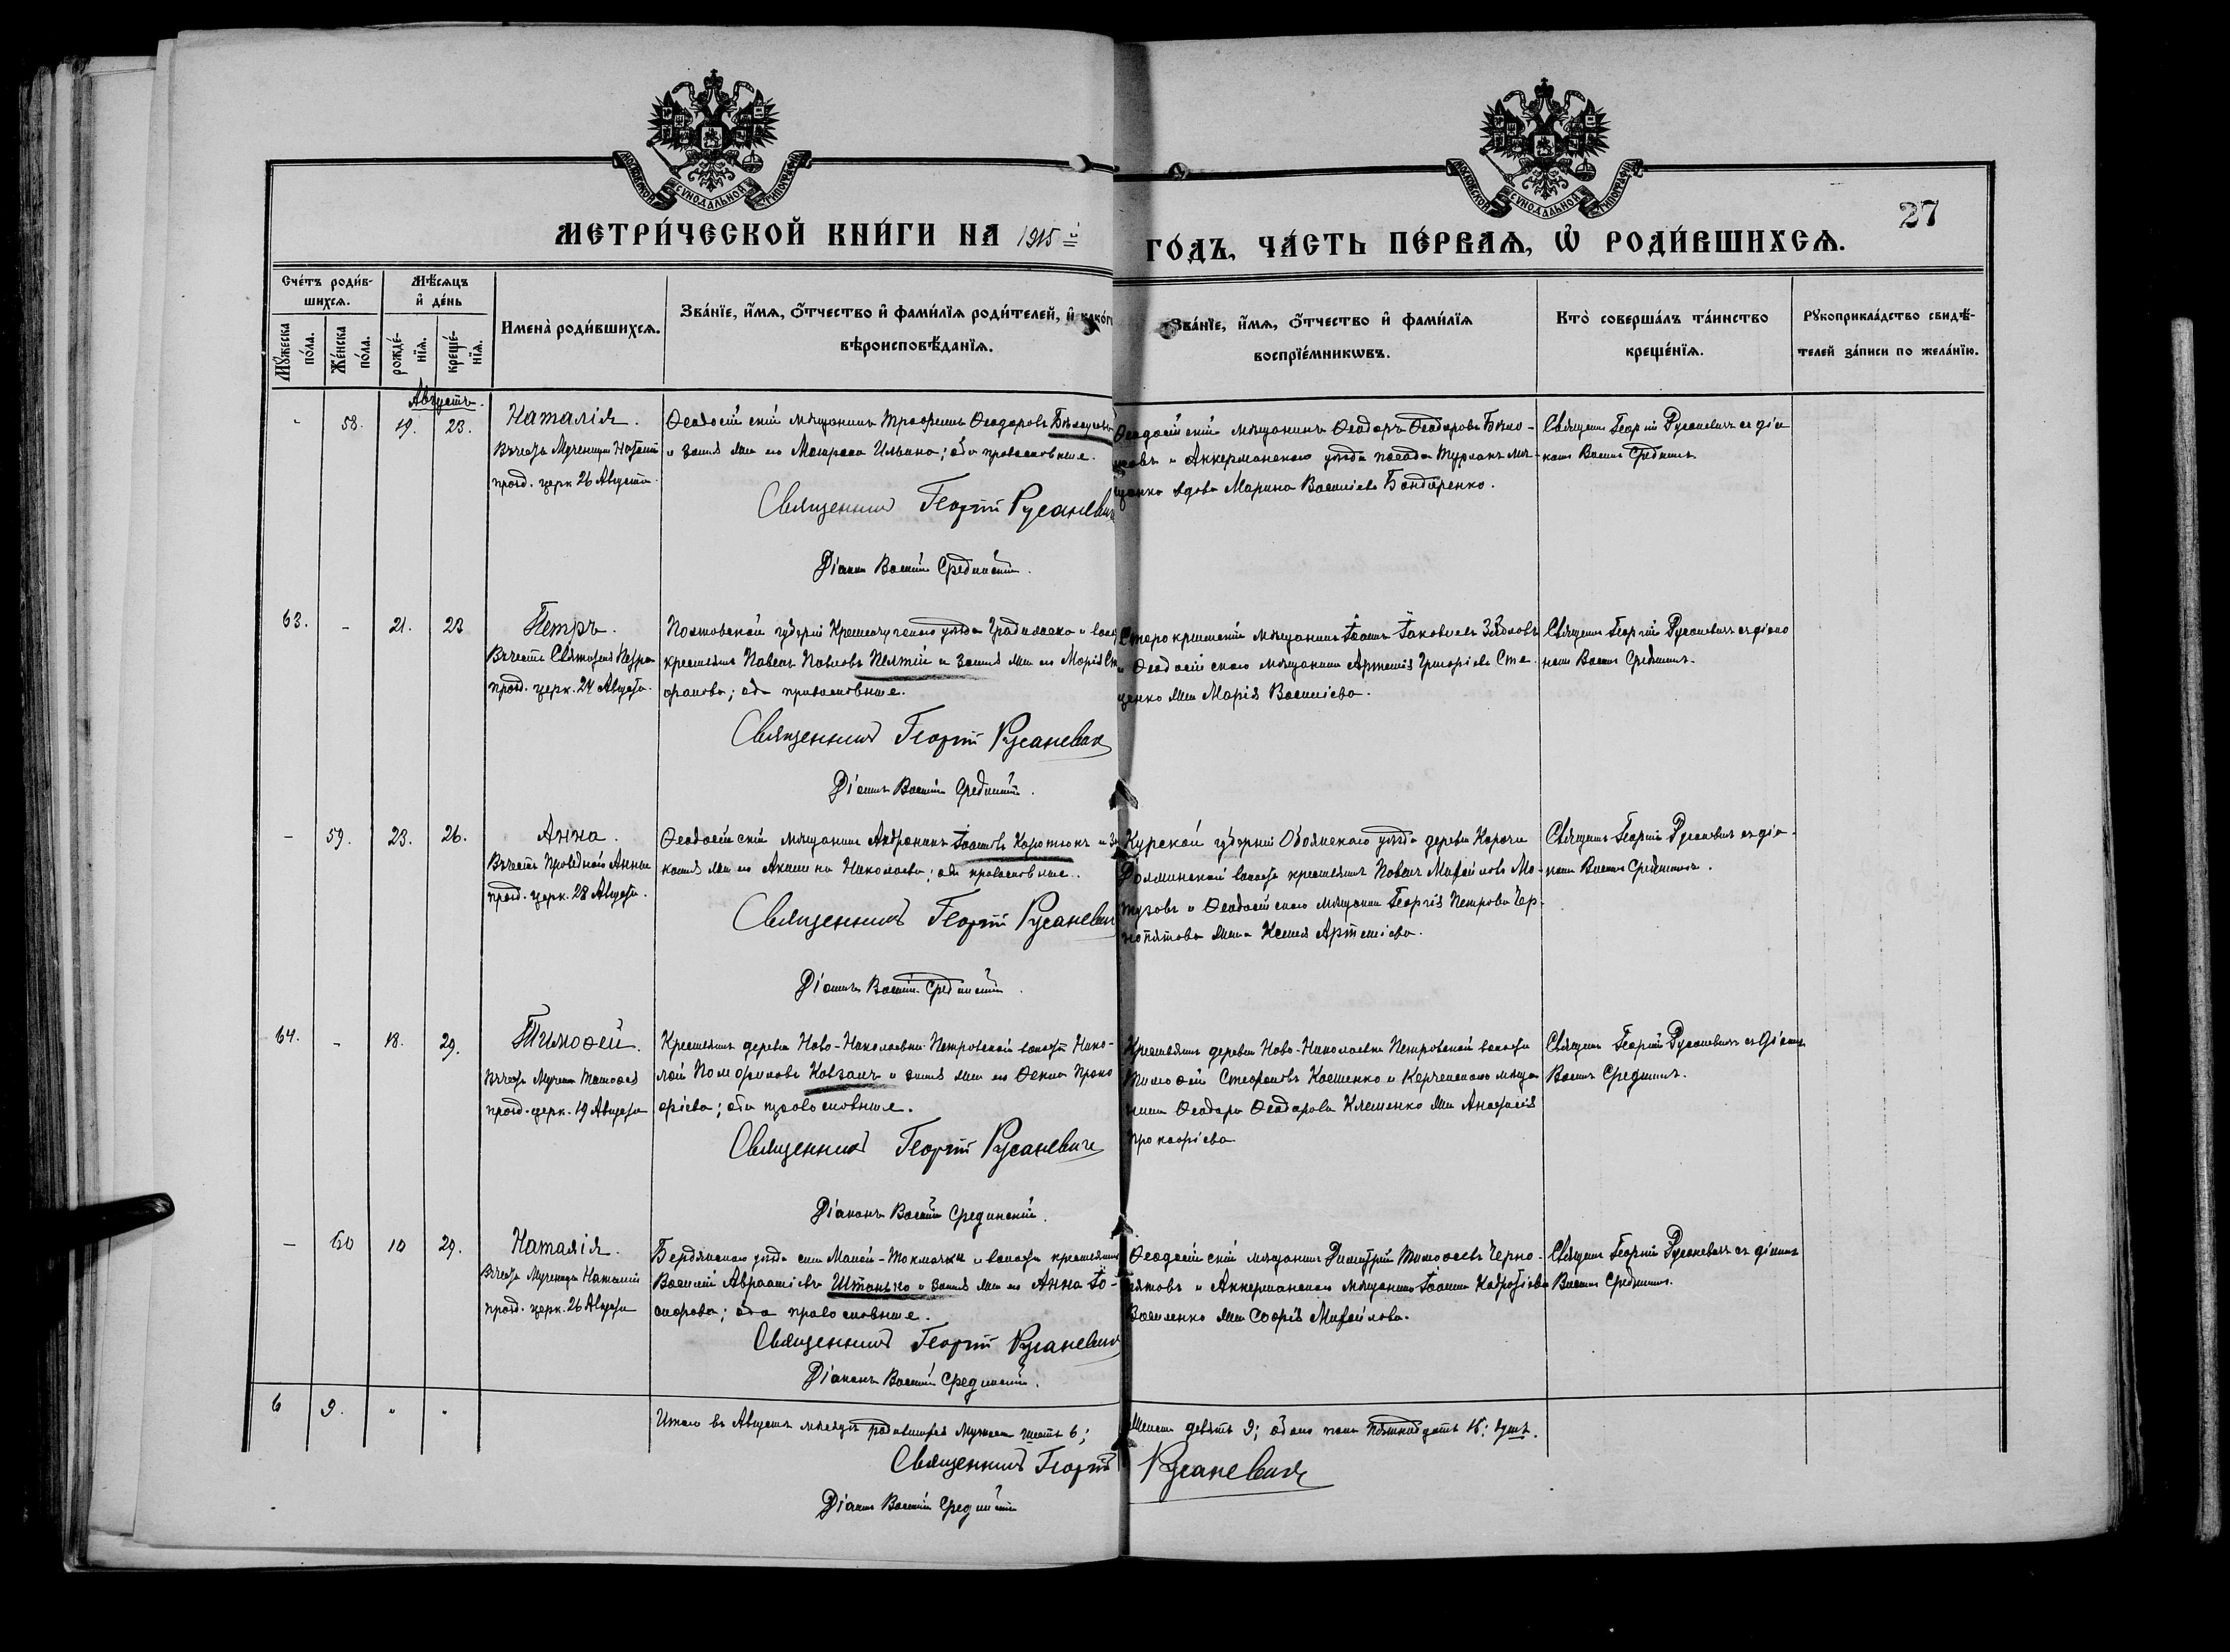 МОСКОВСКОЙ СѴНОДАЛЬНОЙ ТИПОГРАФІИ
МОСКОВСКОЙ СѴНОДАЛЬНОЙ ТИПОГРАФІИ
27
МЕТРИ́ЧЕСКОЙ КНИ́ГИ НА 1915 й ГО́ДЪ, ЧА́СТЬ ПЕ́РВАѦ, Ѡ҆ РОДИ́ВШИХСѦ.
Сче́тъ роди́в-
шихсѧ.
Мꙋ́жеска по́ла.
Же́нска по́ла.
Мѣ́сѧцъ
и҆ де́нь
рожде́-
нїѧ.
креще́-
нїѧ.
Имена̀ роди́вшихсѧ.
Зва́нїе, и҆́мѧ, ѻ҆́тчество и҆ фами́лїѧ роди́телей, и҆ како́гѡ
вѣроисповѣ́данїѧ.
Зва́нїе, и҆́мѧ, ѻ҆́тчество и҆ фами́лїѧ
воспрїе́мникѡвъ.
Кто̀ соверша́лъ та́инство
креще́нїѧ.
Рꙋкоприкла́дство свидѣ́-
телей за́писи по жела́нїю.
Августъ.
58. 19. 23.
Наталія.
Въ честь Мученицы Наталіи
празд. церк. 26 Августа.
Ѳеодосійскій мѣщанинъ Трофимъ Ѳеодоровъ
и законная жена его Матрона Ильина; оба православные.
Священникъ Георгій Русаневичъ
Діаконъ Василій Срединскій.
Ѳеодосійскій мѣщанинъ Ѳеодоръ Ѳеодоровъ Бѣло-
и Аккерманскаго уѣзда посада Турлакъ мѣ-
щанка вдова Марина Василіева Бондаренко.
Священ. Георгій Русаневичъ съ діа
кономъ Василіемъ Срединскимъ.
63. - 21. 23
Петръ.
Въ честь Святителя Петра
празд. церк. 24 Августа.
Полтавской губерніи Кременчугскаго уѣзда Градижска и волости
крестьянинъ Павелъ Павловъ и законная жена его Марія Сте
фанова; оба православные.
Священникъ Георгій Русаневичъ
Діаконъ Василій Срединскій.
Старокрымскій мѣщанинъ Іоаннъ Іаковлевъ
и Ѳеодосійскаго мѣщанина Артемія Григоріева Сте
ценко жена Марія Василіева.
Священ. Георгій Русаневичъ съ діако
номъ Василіемъ Срединскимъ.
- 59. 23. 26.
Анна.
Въ честь Праведной Анны
празд. церк. 28 Августа.
Ѳеодосійскій мѣщанинъ Андроникъ Іоанновъ Коротюкъ и за
конная жена его Акилина Николаева; оба православные.
Священникъ Георгій Русаневичъ
Діаконъ Василій Срединскій.
Курской губерніи Обоянскаго уѣзда деревни Корочи
волости крестьянинъ Павелъ Михайловъ Мо-
и Ѳеодосійскаго мѣщанина Георгія Петрова Чер-
нопятова жена Ксенія Артеміева.
Священ. Георгій Русаневичъ съ діа-
кономъ Василіемъ Срединскимъ.
64. - 18. 29.
Тимоѳей.
Въ честь Мученика Тимоѳея
празд. церк. 19 Августа
Крестьянинъ деревни Ново-Николаевки Петровской волости Нико-
лай Памфиловъ Ковзанъ и законная жена его Ѳекла Проко
фіева; оба православные.
Священникъ Георгій Русаневичъ
Діаконъ Василій Срединскій.
Крестьянинъ деревни Ново-Николаевки Петровской волости
Тимоѳей Стефановъ Костенко и Керченскаго мѣща
нина Ѳеодора Ѳеодорова Клименко жена Анастасія
Прокофіева
Священ. Георгій Русаневичъ съ діакономъ
Василіемъ Срединскимъ.
- 60 10 29.
Наталія.
Въ честь Мученицы Наталіи
празд. церк. 26 Августа
Бердянскаго уѣзда села Малой-Токмачки и волости крестьянинъ
Василій Авраамовъ Штанько и законная жена его Анна Іо-
сифова; оба православные.
Священникъ Георгій Русаневичъ
Діаконъ Василій Срединскій.
Ѳеодосійскій мѣщанинъ Димитрій Тимоѳеевъ Черно-
пятовъ и Аккерманскаго мѣщанина Іоанна
Василенко жена Софія Михайлова.
Священ. Георгій Русаневичъ съ діакономъ
Василіемъ Срединскимъ.
6 9. " "
Итого въ Августѣ мѣсяцѣ родившихся мужеска шесть 6; женска девять 9; обоего пола пятнадцать 15; душъ.
Священникъ Георгій Русаневичъ
Діаконъ Василій Срединскій